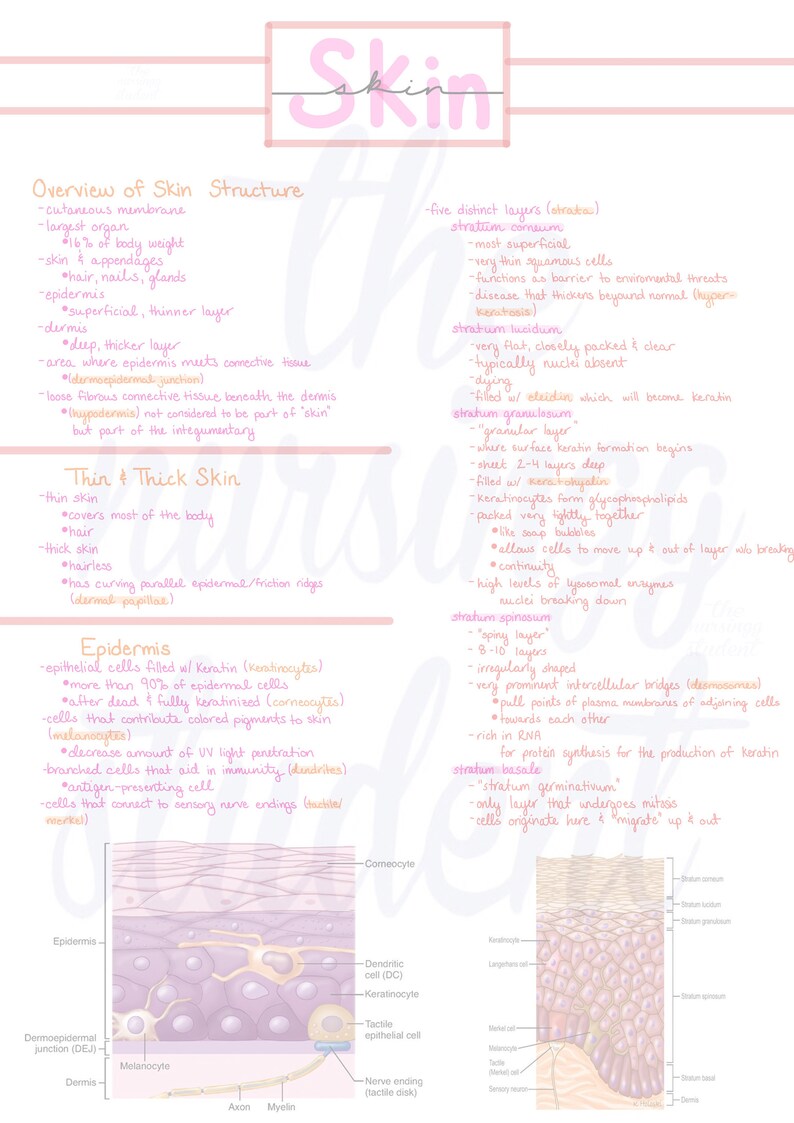 Skin
skin
the
nursingg
student
Overview of Skin Structure
-cutaneous membrane
-largest organ
•16% of body weight
-skin & appendages
•hair, nails, glands
-epidermis
•superficial, thinner layer
-dermis
•deep, thicker layer
-area where epidermis meets connective tissue
•(dermoepidermal junction)
-loose fibrous connective tissue beneath the dermis
•(hypodermis) not considered to be part of "skin"
but part of the integumentary
Thin & Thick Skin
-thin skin
•covers most of the body
•hair
-thick skin
•hairless
•has curving parallel epidermal/friction ridges
(dermal papillae)
Epidermis
-epithelial cells filled w/ Keratin (Keratinocytes)
•more than 90% of epidermal cells
•after dead & fully keratinized (corneocytes)
-cells that contribute colored pigments to skin
(melanocytes)
•decrease amount of UV light penetration
-branched cells that aid in immunity (dendrites)
•antigen-presenting cell
-cells that connect to sensory nerve endings (tactile/
merkel)
-five distinct layers (strata)
stratum corneum
-most superficial
-very thin squamous cells
-functions as barrier to enviromental threats
-disease that thickens beyound normal (hyper-
keratosis)
stratum lucidum
-very flat, closely packed & clear
-typically nuclei absent
-dying
-filled w/ eleidin which will become keratin
stratum granulosum
-"granular layer"
-where surface keratin formation begins
-sheet 2-4 layers deep
-filled w/ Keratohyalin
-Keratinocytes form glycophospholipids
-packed very tightly together
•like soap bubbles
•allows cells to move up & out of layer w/o breaking
•continuity
-high levels of lysosomal enzymes
nuclei breaking down
stratum spinosum
-"spiny layer"
-8-10 layers
-irregularly shaped
-very prominent intercellular bridges (desmosomes)
•pull points of plasma membranes of adjoining cells
•towards each other
-rich in RNA
for protein synthesis for the production of Keratin
stratum basale
-"stratum germinativum"
-only layer that undergoes mitosis
-cells originate here & "migrate" up & out
the
nursingg
student
Corneocyte
Epidermis
Dendritic
cell (DC)
Keratinocyte
Tactile
epithelial cell
Dermoepidermal
junction (DEJ)
Melanocyte
Dermis
Nerve ending
(tactile disk)
Axon
Myelin
Stratum corneum
Stratum lucidum
Stratum granulosum
Keratinocyte
Langerhans cell
Stratum spinosum
Merkel cell
Melanocyte
Tactile
(Merkel) cell
Sensory neuron
Stratum basal
Dermis
the
nursingg
student